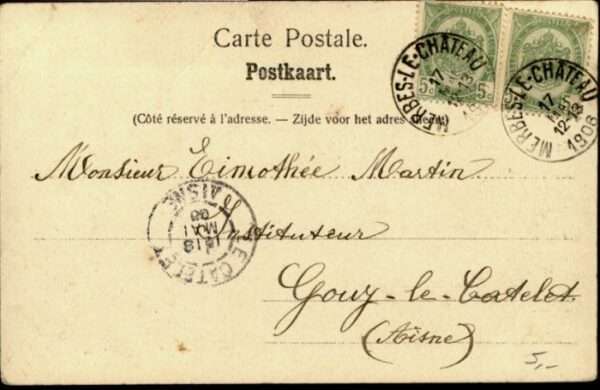 Carte Postale.
Postkaart.
(Côté réservé à l'adresse. — Zijde voor het adres
5c 5c
MERBES-LE-CHÂTEAU
17
12-13
1906
MERBES-LE-CHÂTEAU
17
12-13
1906
Monsieur Timothée Martin
Instituteur
Gouy-le-Catelet
(Aisne)
LE CATELET
AISNE
18
MAI
06
5,-